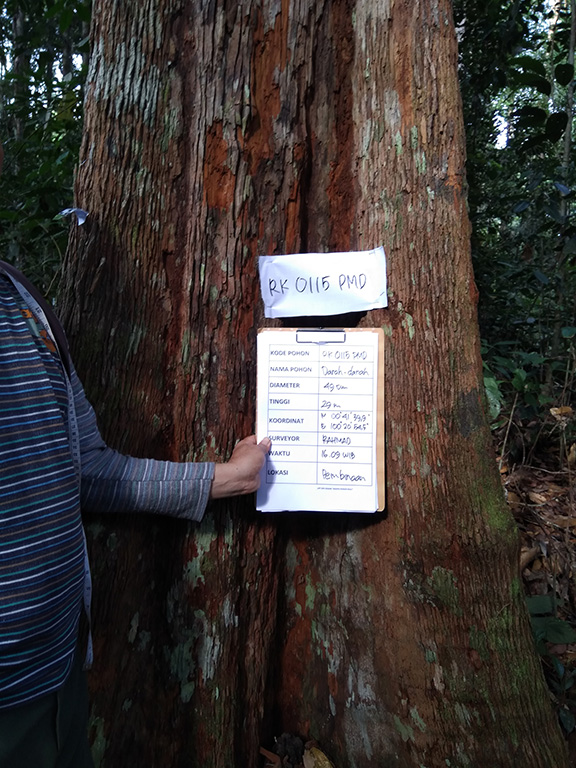 RK 0115 PMD
KODE POHON RK 0115 PMD
NAMA POHON Darah-darah
DIAMETER 49 cm
TINGGI 29 m
KOORDINAT N 00°41'39,9"
E 100°20'54.5"
SURVEYOR RAHMAD
WAKTU 16.09 WIB
LOKASI Pembinaan